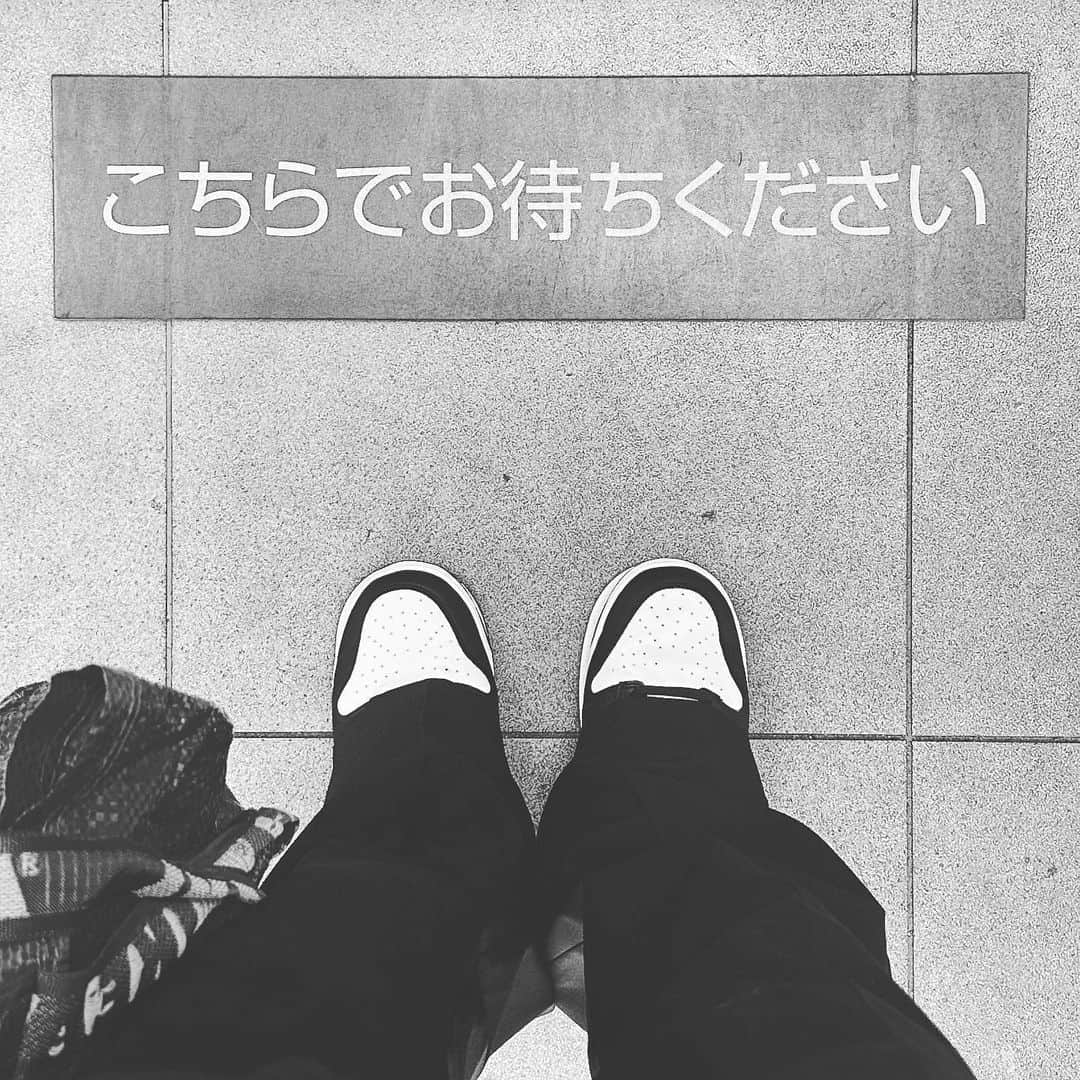 こちらでお待ちください